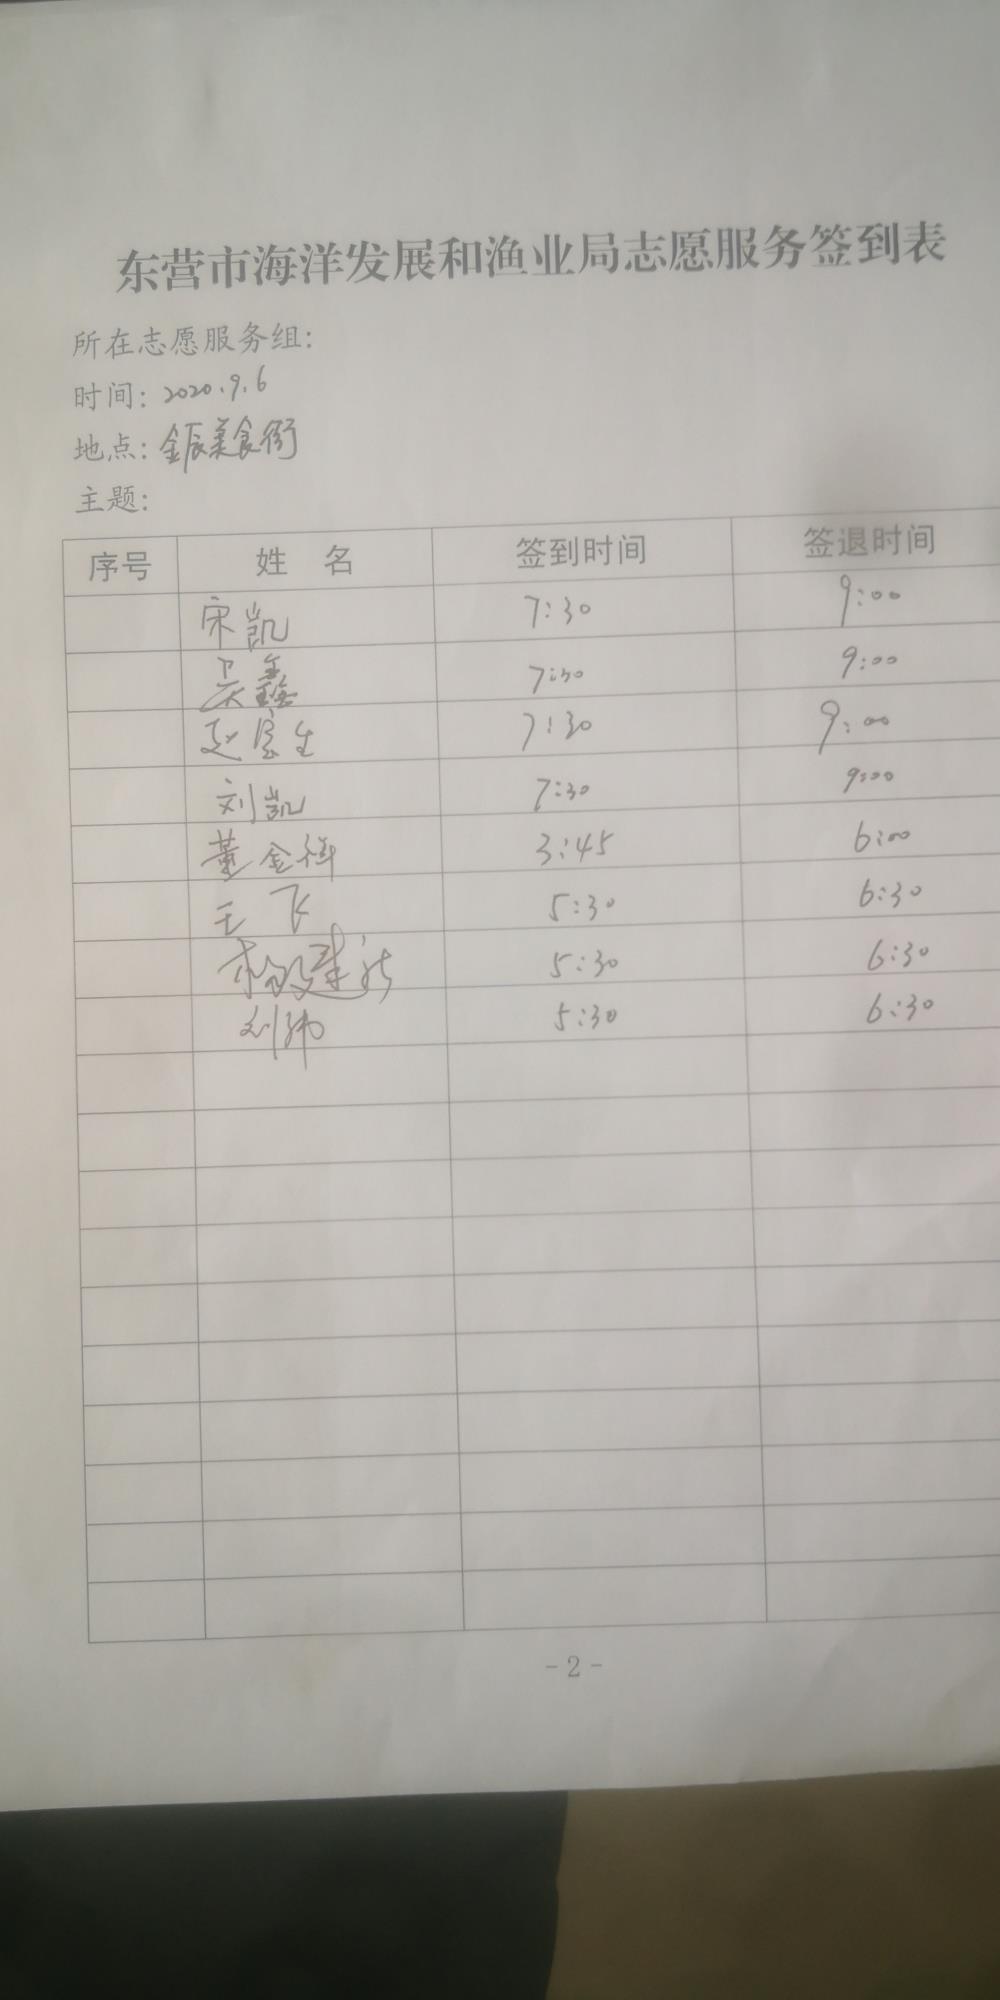 东营市海洋发展和渔业局志愿服务签到表
所在志愿服务组:
时间: 2020.9.6
地点: 金辰美食街
主题:
序号 姓名 签到时间 签退时间
宋凯 7:30 9:00
吴鑫 7:30 9:00
赵 生 7:30 9:00
刘凯 7:30 9:00
董金祥 3:45 6:00
王飞 5:30 6:30
杨建新 5:30 6:30
刘 5:30 6:30
-2-